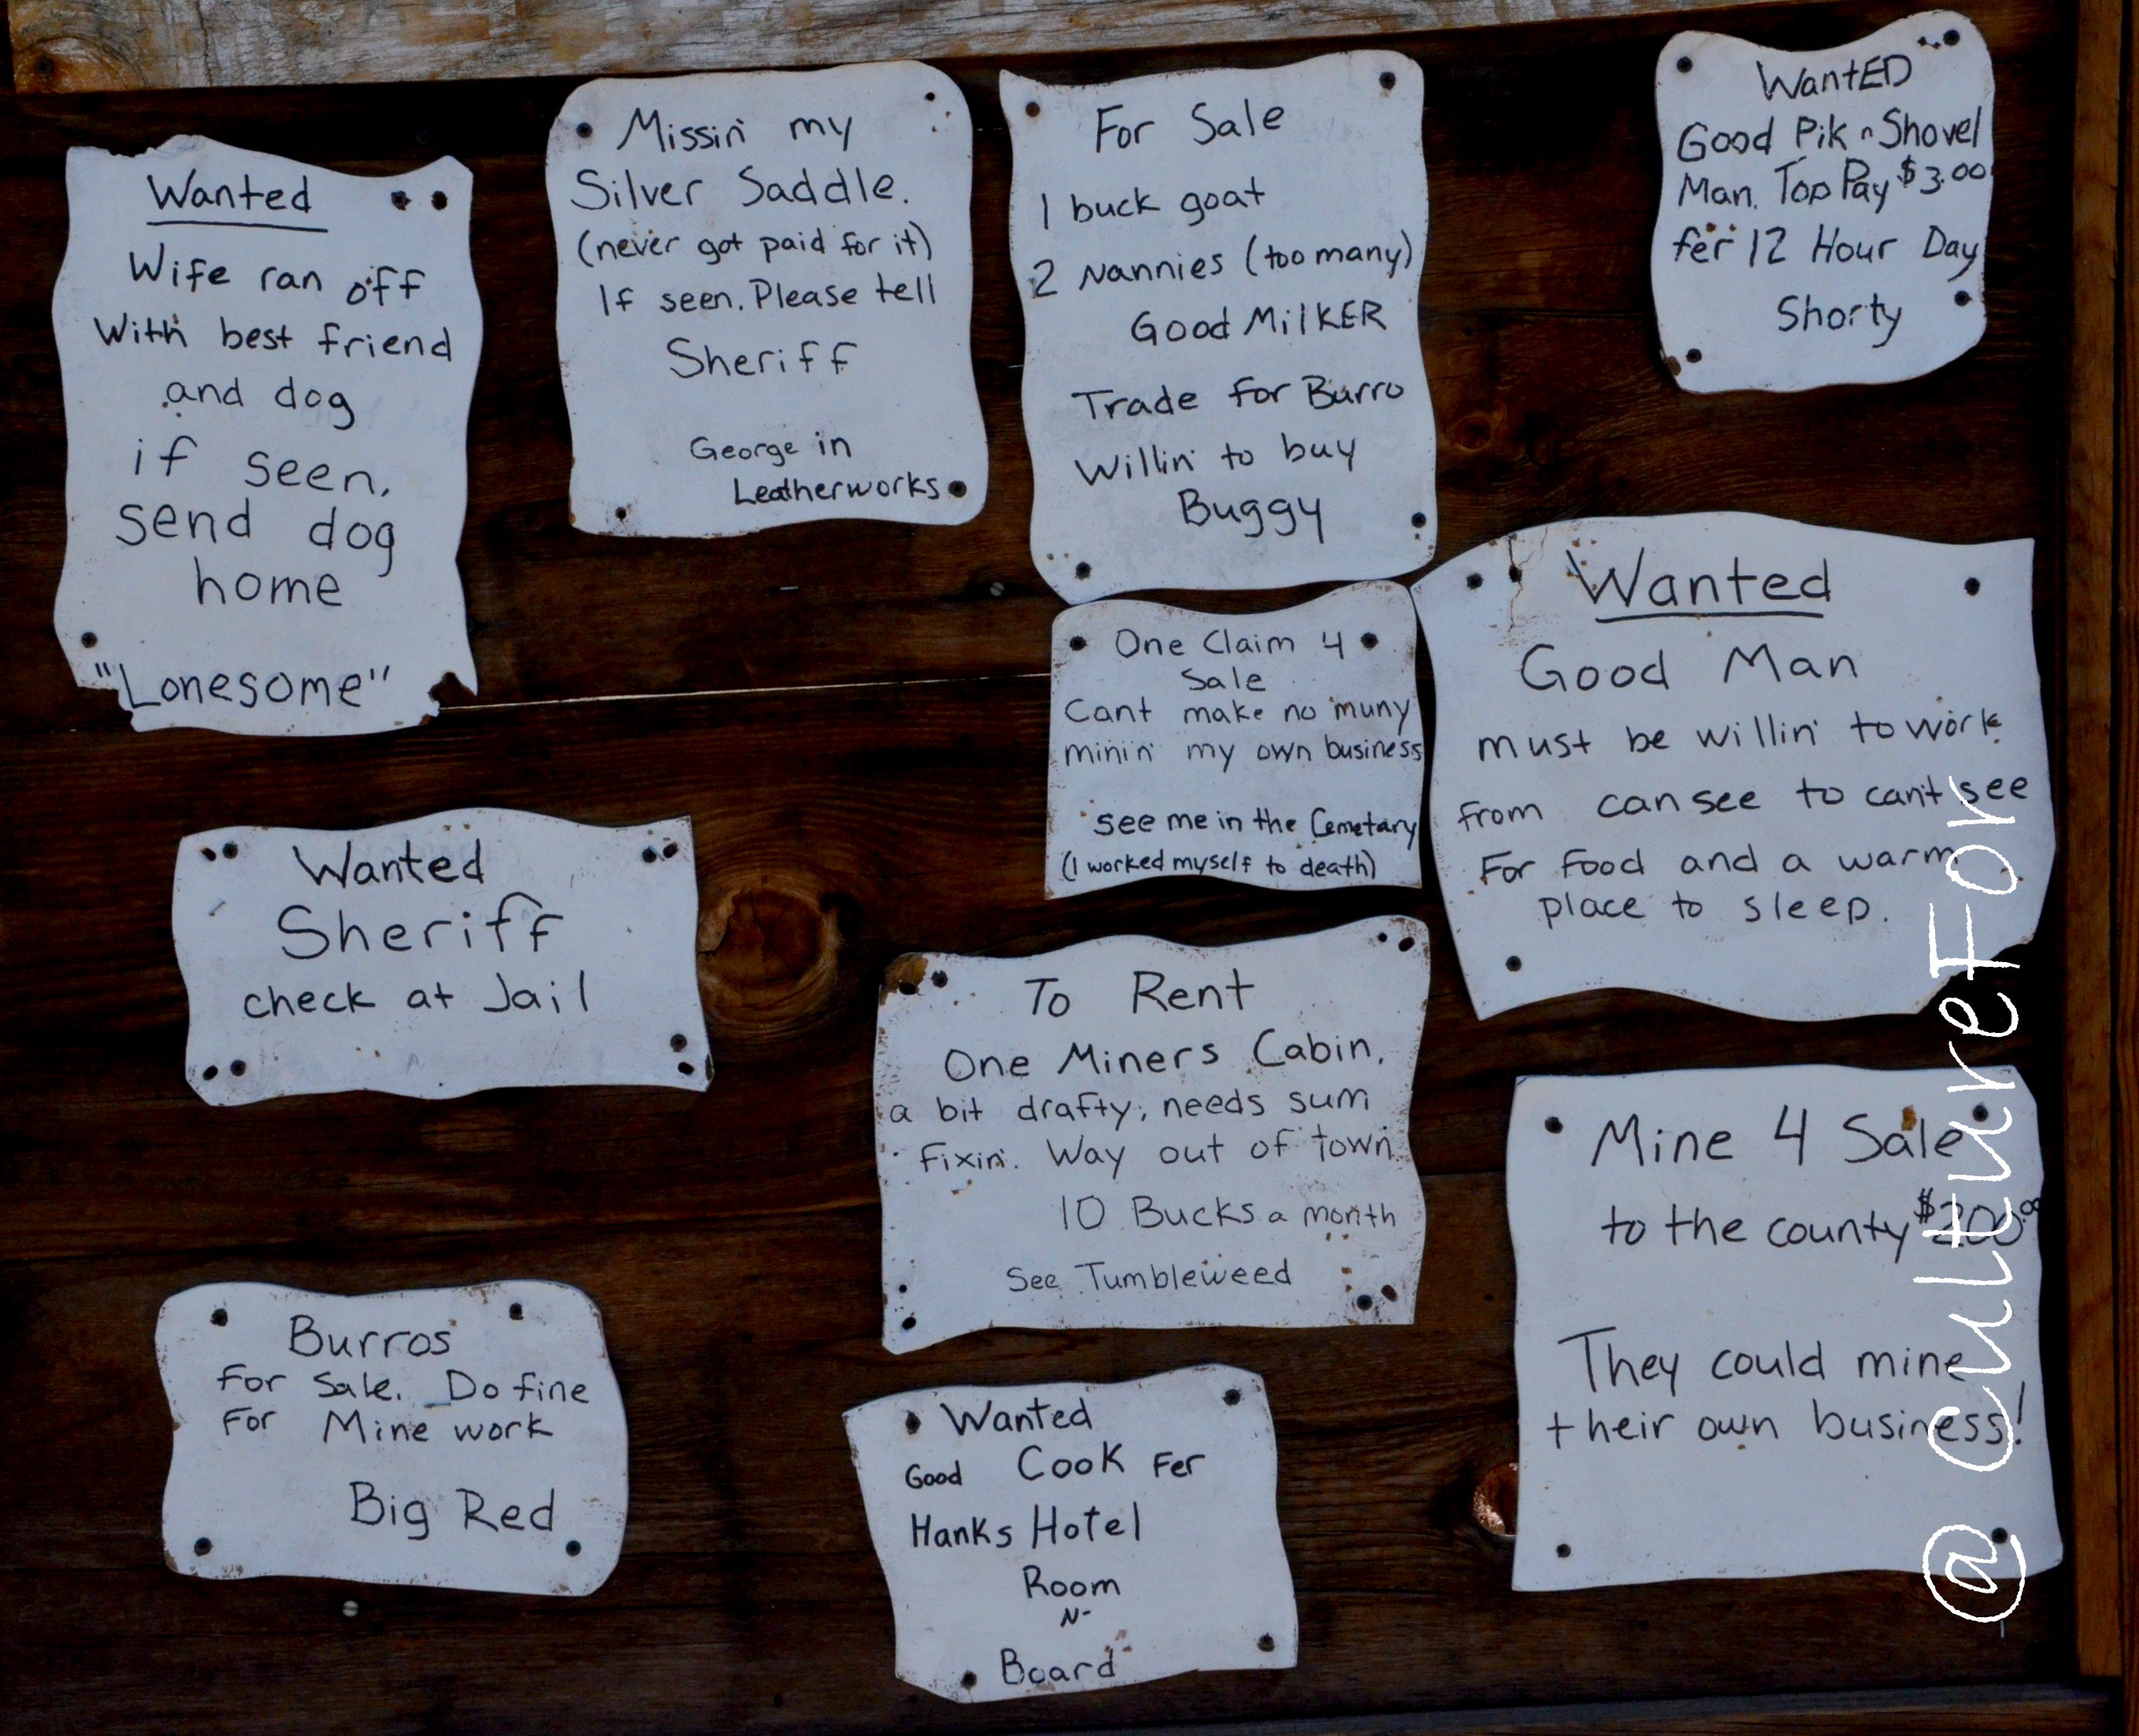 Wanted
Wife ran off
With best friend
and dog
if seen,
send dog
home
"Lonesome"
Missin' my
Silver Saddle.
(never got paid for it)
If seen. Please tell
Sheriff
George in
Leatherworks
For Sale
1 buck goat
2 Nannies (too many)
Good MilKER
Trade for Burro
Willin' to buy
Buggy
WantED
Good Pik n Shovel
Man. Top Pay $3.00
fer 12 Hour Day
Shorty
One Claim 4
Sale
Cant make no muny
minin' my own business
see me in the Cemetary
(I worked myself to death)
Wanted
Good Man
must be willin' to work
from can see to can't see
For food and a warm
place to sleep.
Wanted
Sheriff
check at Jail
To Rent
One Miners Cabin,
a bit drafty, needs sum
fixin'. Way out of town
10 Bucks a month
See Tumbleweed
Mine 4 Sale
to the county $200.00
They could mine
their own business!
Burros
For Sale. Do fine
For Mine work
Big Red
Wanted
Good Cook Fer
Hanks Hotel
Room
N-
Board
@CultureFor